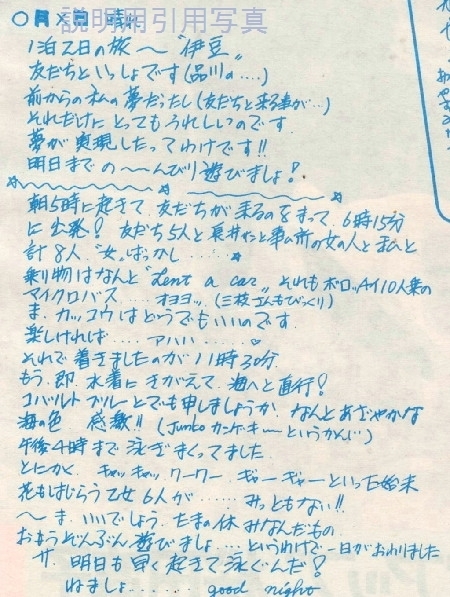 説明用引用写真
○月×日 晴れ
1泊2日の旅〜“伊豆”
友だちといっしょです(品川の....)
前からの私の夢だったし(友だちと来る事が…)
それだけに とってもうれしいのです
夢が実現したってわけです!!
明日までの〜んびり遊びましょ!
朝5時に起きて、友だちが来るのをまって、6時15分
に出発! 友だち5人と 事ム所の女の人と私と
計8人 “女”ばっかし......☆
乗り物はなんと“Lent a car” それもボロッチイ10人乗の
マイクロバス....オヨヨッ、(三枝さんもびっくり)
ま、カッコウはどうでもいいのです
楽しければ.....アハハ......♡
それで着きましたのが11時30分.
もう、即、水着にきがえて、海へと直行!
コバルトブルーとでも申しましょうか、なんとあざやかな
海の色. 感激!! (Junko 〜というかんじ)
午後4時まで泳ぎまくってました
とにかく、キャッキャッ、ワーワー、ギャーギャーといった始末
花もはじらう乙女6人が......みっともない!!
〜ま、いいでしょう、たまの休みなんだもの.
おもうぞんぶん遊びましょ....というわけで一日がおわりました
サ、明日も早く起きて泳ぐんだ!
ねましょ........good night